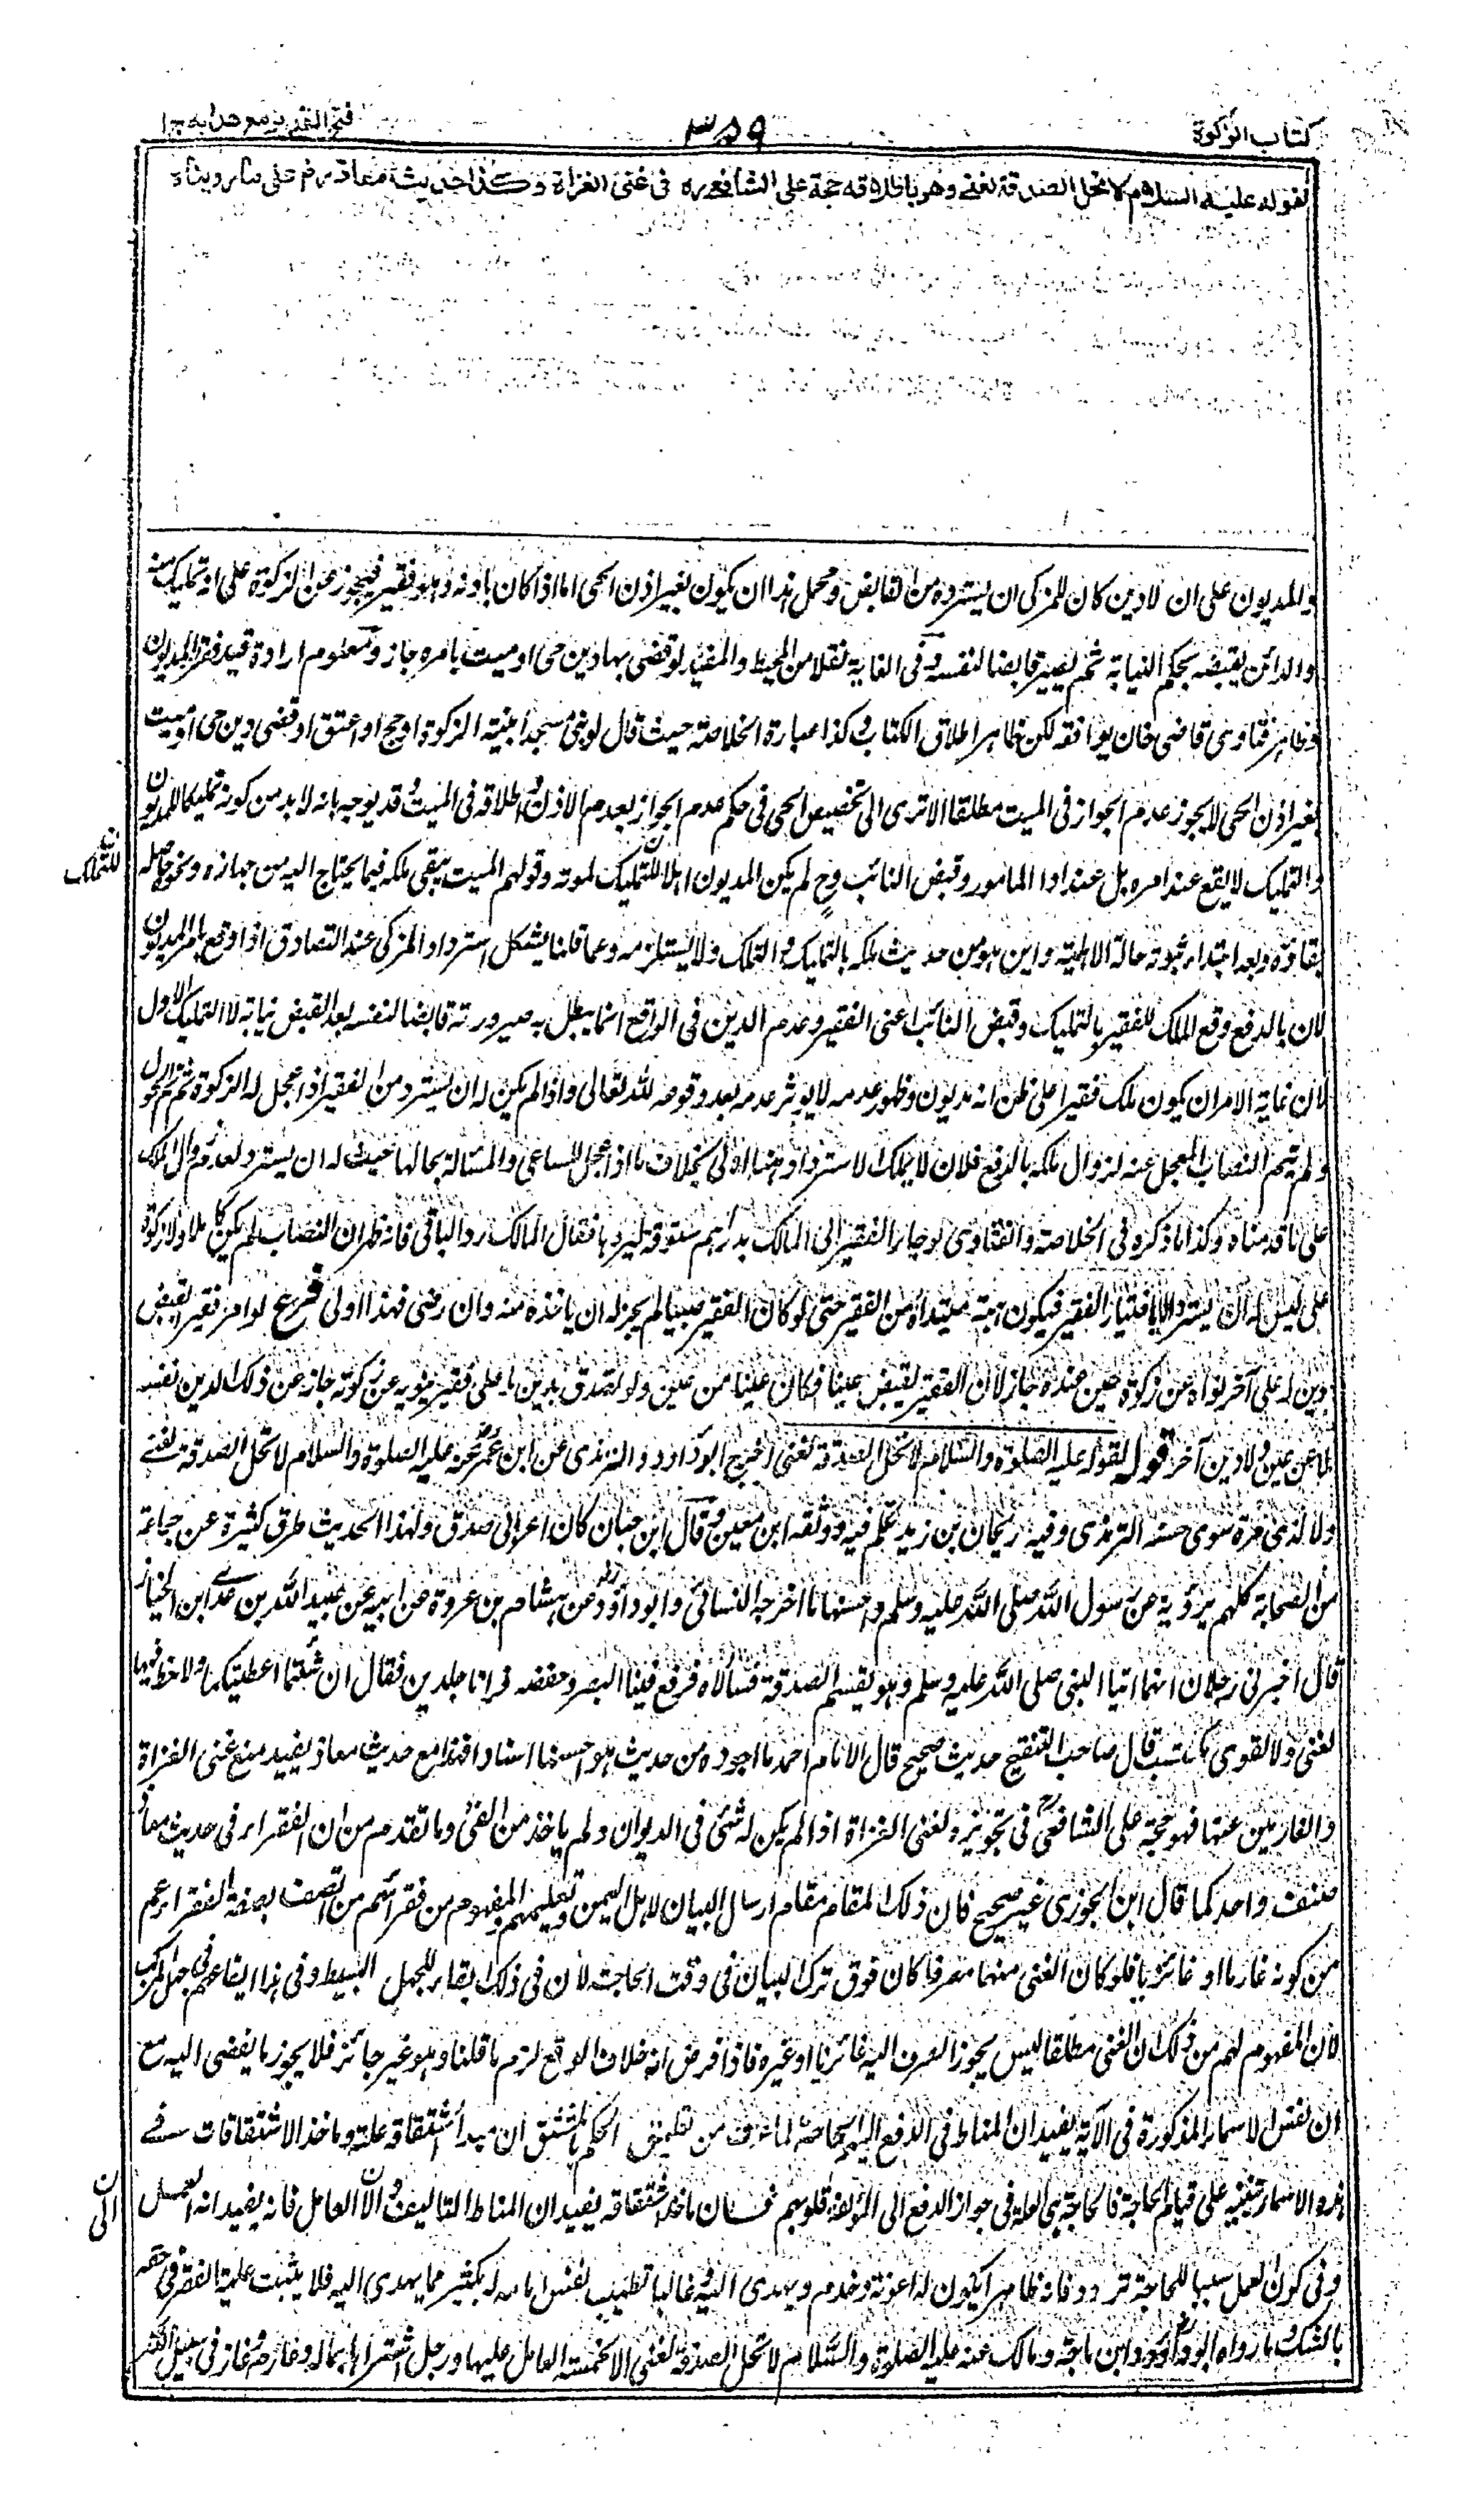 كتاب الزكوة
٣٥٩
فتح القدير مع هدايه ج ١
لقوله عليه السلام لا تحل الصدقة لغنى وهو باطلاقه حجة على الشافعى ره فى غنى الغزاة وكذا حديث معاذ رض على ما روينا ه
والمديون على ان لا دين كان للمزكى ان يسترده من القابض ومحمل هذا ان يكون بغير اذن الحى اما اذا كان باذنه وهو فقير فيجوز عن الزكوة على انه تمليك منه
والدائن يقبضه بحكم النيابة ثم يصير قابضا لنفسه وفى الغاية نقلا من المحيط والمفيد لو قضى بها دين حى او ميت بامره جاز ومعلوم ارادة قيد فقر المديون
وظاهر فتاوى قاضى خان يوافقه لكن ظاهر اطلاق الكتاب وكذا عبارة الخلاصة حيث قال لو بنى مسجدا بنية الزكوة او حج او اعتق او قضى دين حى او ميت
بغير اذن الحى لا يجوز عدم الجواز فى الميت مطلقا الا ترى الى تخصيص الحى فى حكم عدم الجواز بعدم الاذن واطلاقه فى الميت وقد يوجه بانه لا بد من كونه تمليكا للمديون
والتمليك لا يقع عند امره بل عند ادا المامور وقبض النائب وح لم يكن المديون اهلا للتمليك لموته وقولهم الميت يبقى ملكه فيما يحتاج اليه من جهازه ونحوه حاصله
للتملك
بقاؤه بعد ابتداء ثبوته حالة الاهلية واين هو من حديث ملكه بالتمليك والتملك ولا يستلزمه وعما قلنا يشكل استرداد المزكى عند التصادق اذا وقع بامر المديون
لان بالدفع وقع الملك للفقير بالتمليك وقبض النائب اعنى الفقير وعدم الدين فى الواقع انما يبطل به صيرورته قابضا لنفسه بعد القبض نيابة لا التمليك الاول
لان غاية الامر ان يكون ملك فقيرا على ظن انه مديون وظهور عدمه لا يوثر عدمه بعد وقوعه لله تعالى واذا لم يكن له ان يسترد من الفقير اذا عجل له الزكوة ثم تم الحول
ولم يتم النصاب المعجل عنه لزوال ملكه بالدفع فلان لا يملك الاسترداد هنا اولى بخلاف ما اذا عجل للساعى والمسئالة بحالها حيث له ان يسترد لعدم زوال الملك
على ما قدمناه وكذا ما ذكره فى الخلاصة والفتاوى لو جاء الفقير الى المالك بدراهم ستوقة ليردها فقال المالك رد الباقى فانه ظهر ان النصاب لم يكن كاملا ولا زكوة
على ليس له ان يسترد الا باختيار الفقير فيكون هبة مبتداة من الفقير حتى لو كان الفقير صبيا لم يجز له ان ياخذه منه وان رضى فهذا اولى فرع لو امر فقيرا بقبض
دين له على آخر نواه عن زكوة عين عنده جاز لان الفقير يقبض عينا فكان عينا عن عين ولو تصدق بدين له على فقير ينويه عن زكوته جاز عن ذلك الدين نفسه
لا عن عين ولا دين آخر قوله لقوله عليه الصلوة والسلام لا تحل الصدقة لغنى اخرج ابو داود والترمذى عن ابن عمر عنه عليه الصلوة والسلام لا تحل الصدقة لغنى
ولا لذى مرة سوى حسنه الترمذى وفيه ريحان بن زيد تكلم فيه ووثقه ابن معين وقال ابن حبان كان اعرابى صدق ولهذا الحديث طرق كثيرة عن جماعة
من الصحابة كلهم يرويه عن رسول الله صلى الله عليه وسلم واحسنها ما اخرجه النسائى وابو داود عن هشام بن عروة عن ابيه عن عبيد الله بن عدى ابن الخيار
قال اخبرنى رجلان انهما اتيا النبى صلى الله عليه وسلم وهو يقسم الصدقة فسألاه فرفع فينا البصر وخفضه فرانا جلدين فقال ان شئتما اعطيتكما ولا حظ فيها
لغنى ولا لقوى مكتسب قال صاحب التنقيح حديث صحيح قال الامام احمد ما اجوده من حديث هو احسنها اسنادا فهذا مع حديث معاذ يفيد منع غنى الغزاة
والغارمين عنها فهو حجة على الشافعى رح فى تجويزه لغنى الغزاة اذا لم يكن له شئى فى الديوان ولم ياخذ من الفئ وما تقدم من ان الفقراء فى حديث معاذ
صنف واحد كما قال ابن الجوزى غير صحيح فان ذلك المقام مقام ارسال البيان لاهل اليمن وتعليمهم والمفهوم من فقرائهم من اتصف بصفة الفقر اعم
من كونه غارما او غازيا فلو كان الغنى منها مصرفا كان فوق ترك البيان فى وقت الحاجة لان فى ذلك ابقاء للجهل البسيط وفى هذا ايقاعهم فى جهل المركب
لان المفهوم لهم من ذلك ان الغنى مطلقا ليس يجوز الصرف اليه غازيا او غيره فاذا فرض انه خلاف الواقع لزم ما قلنا وهو غير جائز فلا يجوز ما يفضى اليه مع
ان نفس الاسماء المذكورة فى الآية يفيد ان المناط فى الدفع اليهم الحاجة لما عرف من تعليق الحكم بالمشتق ان مبدأ اشتقاقه علة وماخذ الاشتقاقات فى
هذه الاسماء تنبيه على قيام الحاجة فالحاجة هى العلة فى جواز الدفع الى المؤلفة قلوبهم فان ماخذ اشتقاقه يفيد ان المناط التاليف والا العامل فانه يفيد انه العمل
الا ان
وفى كون العمل سببا للحاجة تردد فانه ظاهرا يكون له اعونة وخدم ويهدى اليه وغالبا تطيب نفس امامه له بكثير مما يهدى اليه فلا يثبت علية الفقر فى حقه
بالشك وما رواه ابو داود وابن ماجة ومالك عنه عليه الصلوة والسلام لا تحل الصدقة لغنى الا لخمسة العامل عليها ورجل اشتراها بماله وغارم وغاز فى سبيل الله